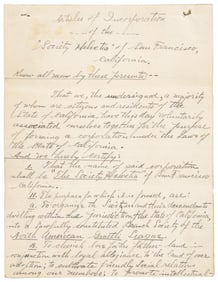 Articles of Incorporation
of the
"Society Helvetia" of San Francisco,
California.
Know all men by these presents—
That we, the undersigned, a majority
of whom are citizens and residents of the
State of California, have this day voluntarily
associated ourselves together for the purpose
of forming a corporation under the Laws
of the State of California.
And we hereby certify:
I. That the name of said corporation
shall be "The Society Helvetia" of San Francisco
California.
II. The purpose for which it is formed, are:
A. To organize the Swiss and their descendants
dwelling within the jurisdiction of the State of California
into a lawfully constituted Branch Society of the
North American Gruetli League.
B. To cherish love to the father-land in
connection with loyal allegiance to the land of our
adoption; to cultivate friendly social relations
among our members; to promote intellectual